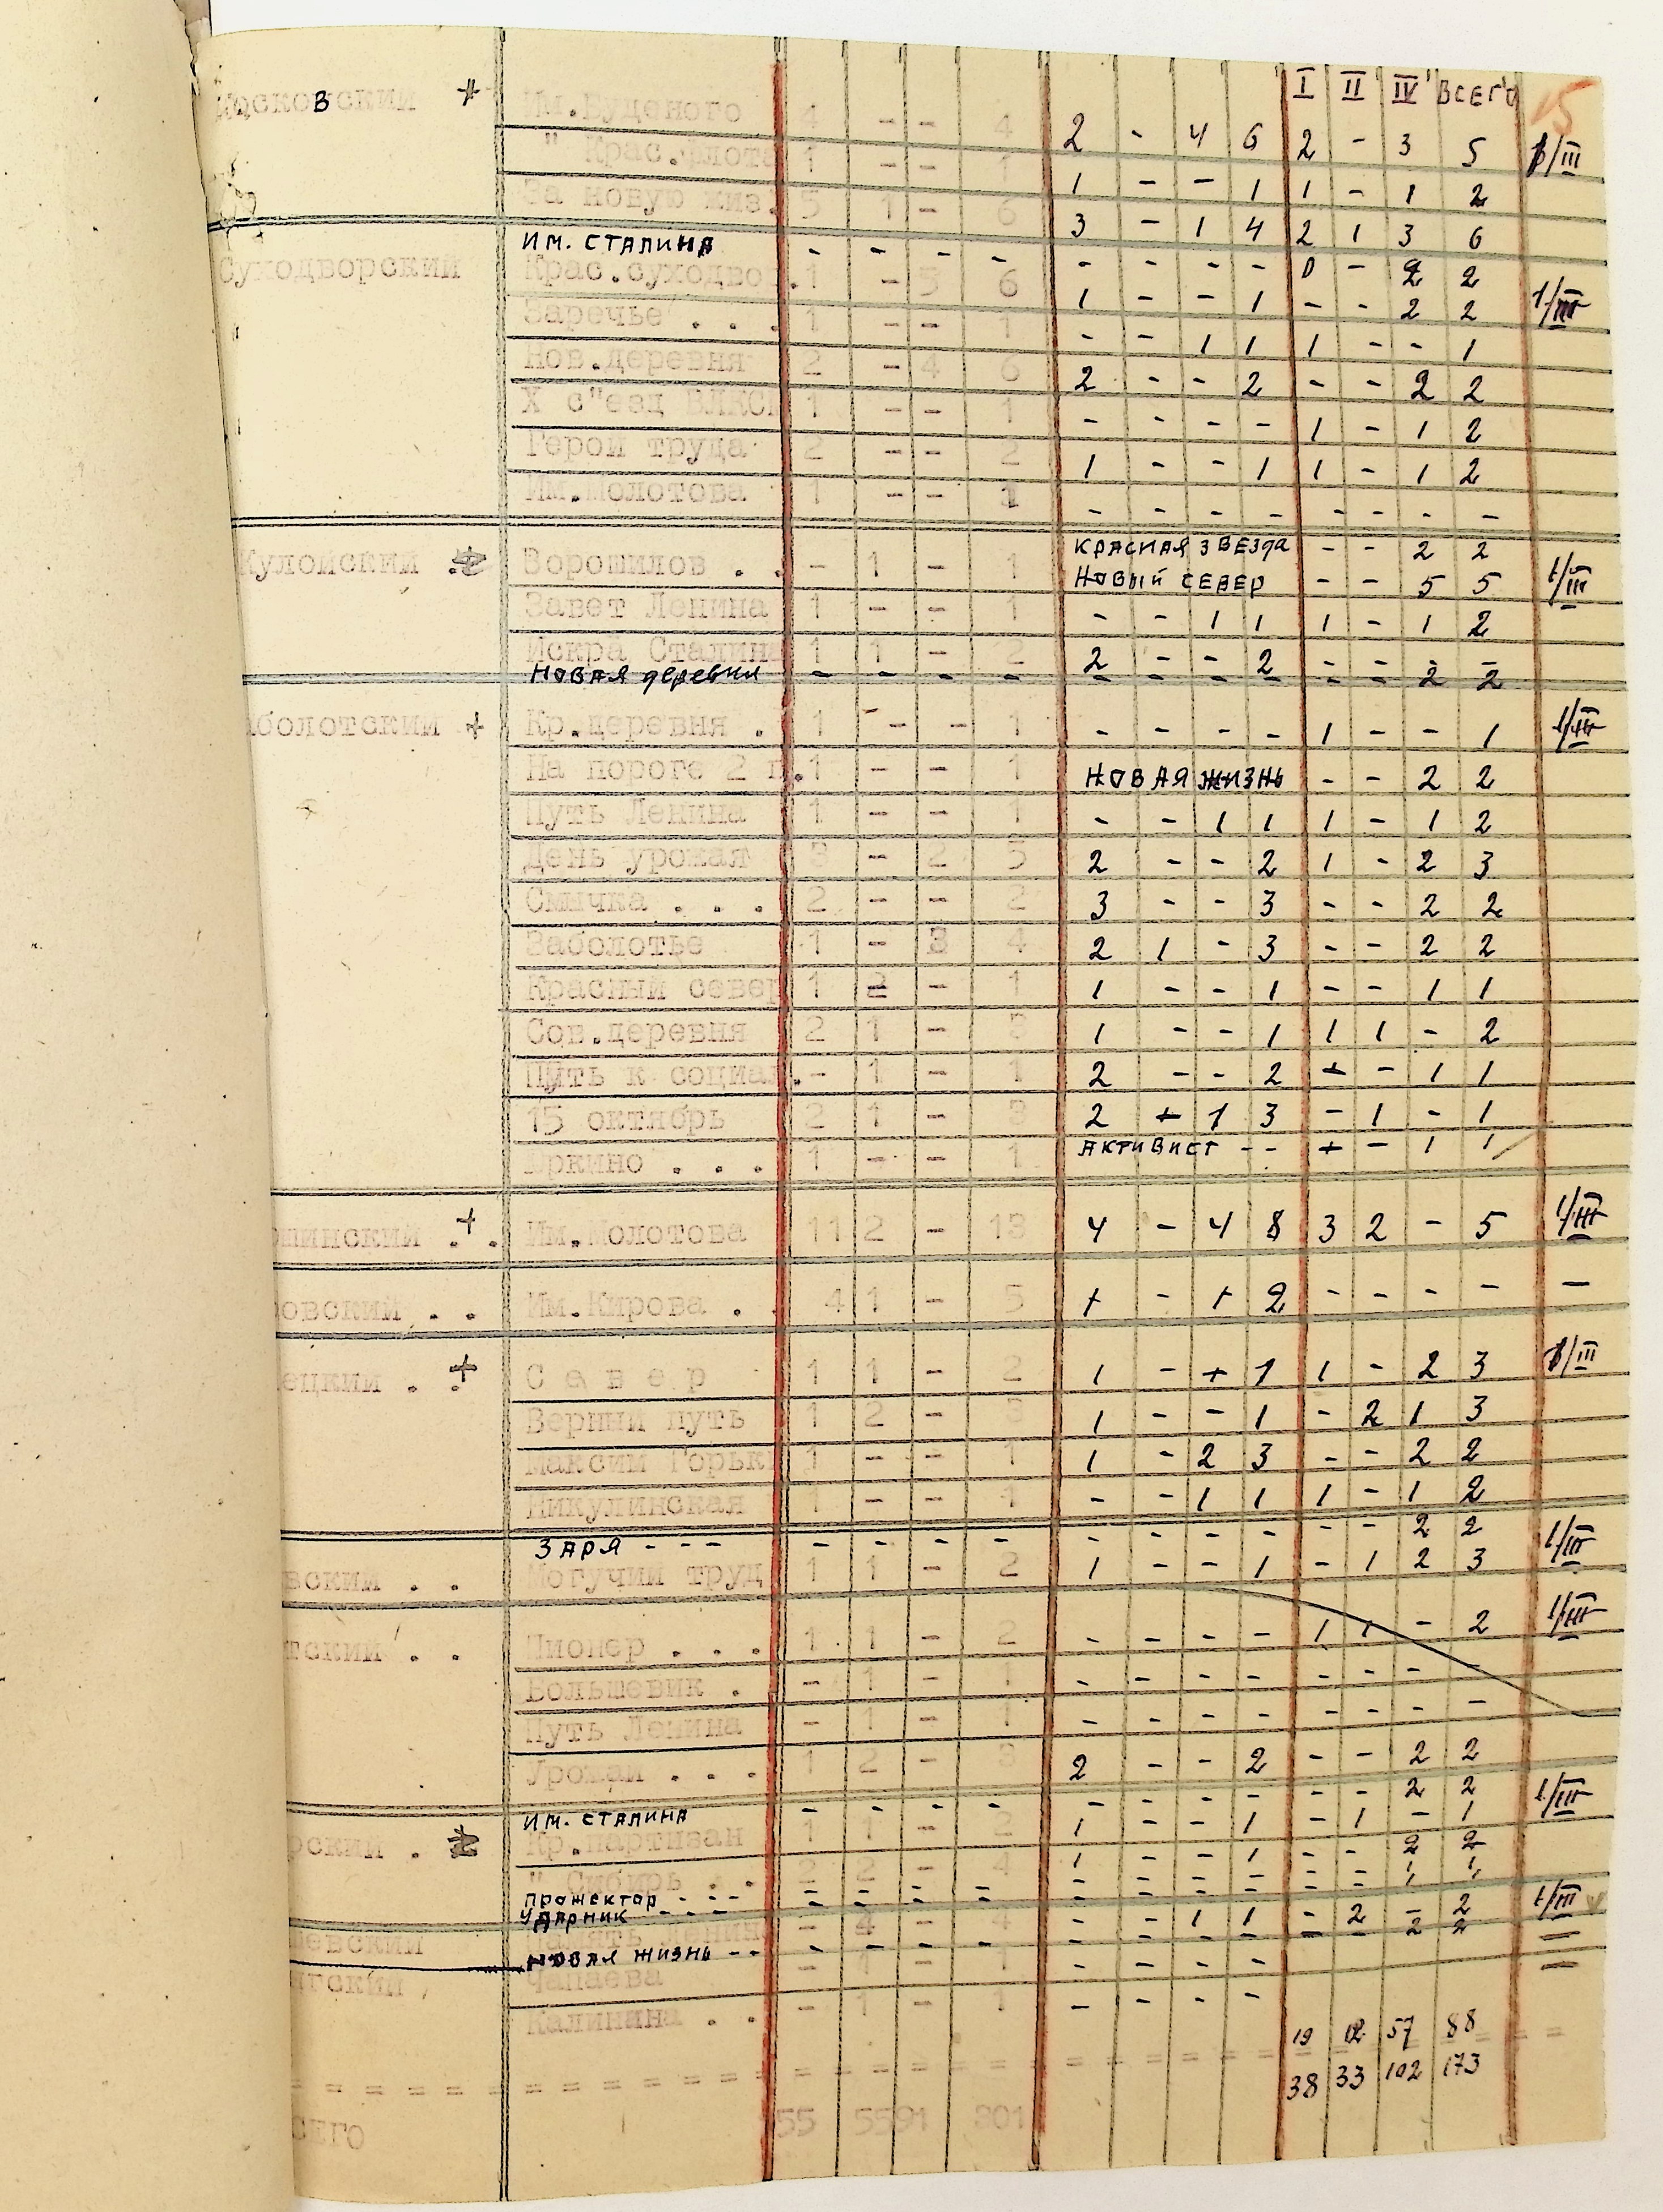 I II IV ВСЕГО 15
Московский + Им.Буденого 4 - - 4 2 - 4 6 2 - 3 5 1/III
" Крас.флота 1 - - 1 1 - - 1 1 - 1 2
За новую жиз. 5 1 - 6 3 - 1 4 2 1 3 6
ИМ. СТАЛИНА - - - - - - - - - 2 2
Суходворский Крас.суходво. 1 - 5 6 1 - - 1 - - 2 2 1/III
Заречье . . . 1 - - 1 - - 1 1 1 - - 1
Нов.деревня 2 - 4 6 2 - - 2 - - 2 2
X с"езд ВЛКСМ 1 - - 1 - - - - 1 - 1 2
Герой труда 2 - - 2 1 - - 1 1 - 1 2
Им.Молотова 1 - - 1 - - - - - - - -
КРАСНАЯ ЗВЕЗДА - - 2 2
Кулойский Ворошилов . . - 1 - 1 НОВЫЙ СЕВЕР - - 5 5 1/III
Завет Ленина 1 - - 1 - - 1 1 1 - 1 2
Искра Сталина 1 1 - 2 2 - - 2 - - - -
НОВАЯ деревня - - - - - - - - - - 2 2
болотский + Кр.деревня . 1 - - 1 - - - - 1 - - 1 1/III
На пороге 2 п. 1 - - 1 НОВАЯ ЖИЗНЬ - - 2 2
Путь Ленина 1 - - 1 - - 1 1 1 - 1 2
День урожая 3 - 2 5 2 - - 2 1 - 2 3
Смычка . . . 2 - - 2 3 - - 3 - - 2 2
Заболотье 1 - 3 4 2 1 - 3 - - 2 2
Красный север 1 - - 1 1 - - 1 - - 1 1
Сов.деревня 2 1 - 3 1 - - 1 1 1 - 2
Путь к социал. - 1 - 1 2 - - 2 - - 1 1
15 октябрь 2 1 - 3 2 - 1 3 - 1 - 1
Юркино . . . 1 - - 1 АКТИВИСТ - - - - 1 1
шинский . + . Им.Молотова 11 2 - 13 4 - 4 8 3 2 - 5 1/III
овский . . Им.Кирова . 4 1 - 5 + - + 2 - - - - -
ецкий . + Север 1 1 - 2 1 - + 1 1 - 2 3 1/III
Верный путь 1 2 - 3 1 - - 1 - 2 1 3
Максим Горьк 1 - - 1 1 - 2 3 - - 2 2
Никулинская 1 - - 1 - - 1 1 1 - 1 2
ЗАРЯ - - - - - - - - - - - - - 2 2
вский . . Могучий труд 1 1 - 2 1 - - 1 - 1 2 3 1/III
тский . . Пионер . . . 1 1 - 2 - - - - 1 1 - 2 1/III
Большевик . - 1 - 1 - - - - - - - -
Путь Ленина - 1 - 1 - - - - - - - -
Урожай . . . 1 2 - 3 2 - - 2 - - 2 2
ИМ. СТАЛИНА - - - - - - - - - - 2 2
рский . Кр.партизан 1 1 - 2 1 - - 1 - 1 - 1 1/III
" Сибирь . . 2 2 - 4 1 - - 1 - - 2 2
Прожектор - - - - - - - - - - - - - 1 1
УДАРНИК - - - - - - -
- 4 - 4 - - 1 1 - 2 - 2 1/III
шевский
НОВАЯ ЖИЗНЬ - - - - - - - - - - - - 2 2
Чапаева - 1 - 1 - - - -
Калинина . . - 1 - 1 - - - -
19 12 57 88
38 33 102 173
СЕГО 55 5591 301